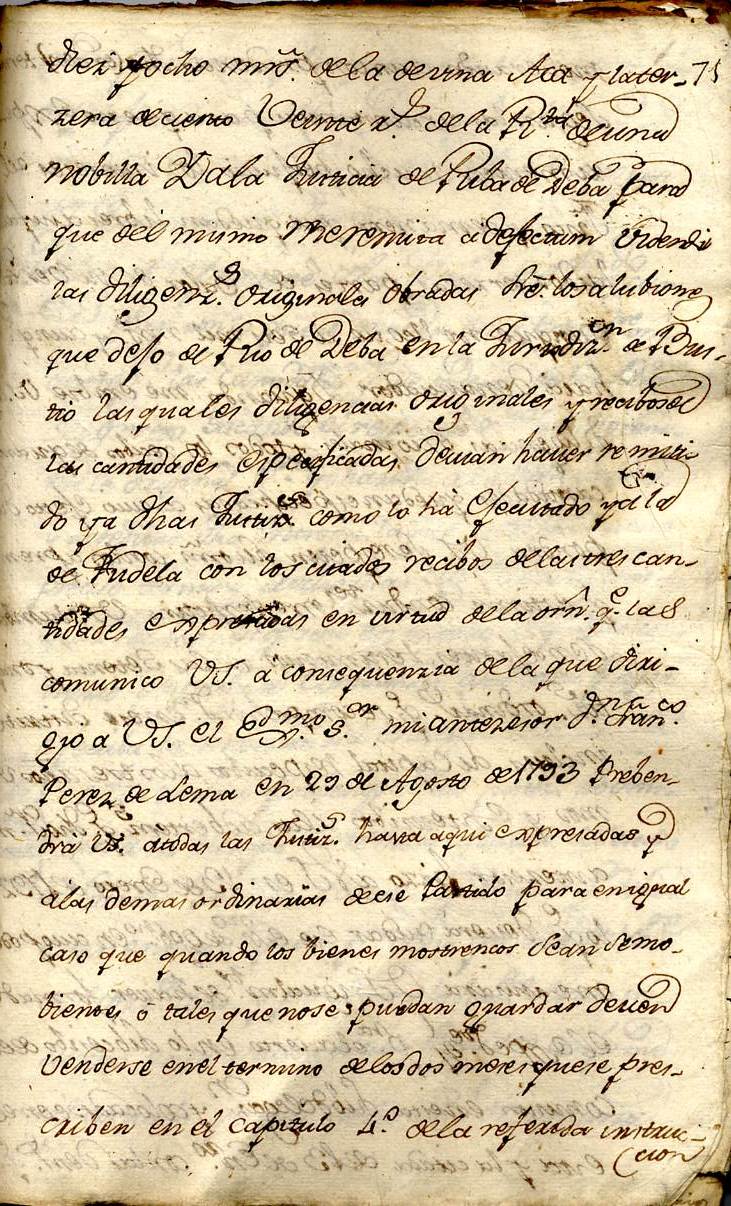 diez y ocho mrs. de la de una Aca y la ter- 75
zera de ciento Veinte rs. de la Rta. de una
nobilla Y a la Justicia de Puba de Deba para
que del mismo me remita ad efectum Videndi
las diligenzs. originales obradas sre. los alubiones
que dejo el Rio de Deba en la Jurisdizn. de Bus-
tio las quales diligencias originales y recibos de
las cantidades especificadas devian haver remiti-
do ya dhas Justizs. como lo ha efecutado ya la
de Tudela con los citados recibos de las tres can-
tidades expresadas en virtud de la orn. qe. las
comunico VS. a consequenzia de la que diri-
gio a VS. el Sor. mi antezesor Dn. Franco.
Perez de Lema en 29 de Agosto de 1793 Preben-
drá VS. a todas las Justizs. hasta aqui expresadas y
a las demas ordinarias de ese Partido para en igual
caso que quando los bienes mostrencos sean semo-
bientes ó tales que no se puedan guardar deven
Venderse en el termino de los dos meses que se pres-
criben en el capitulo 4.º de la referida instruc-
cion